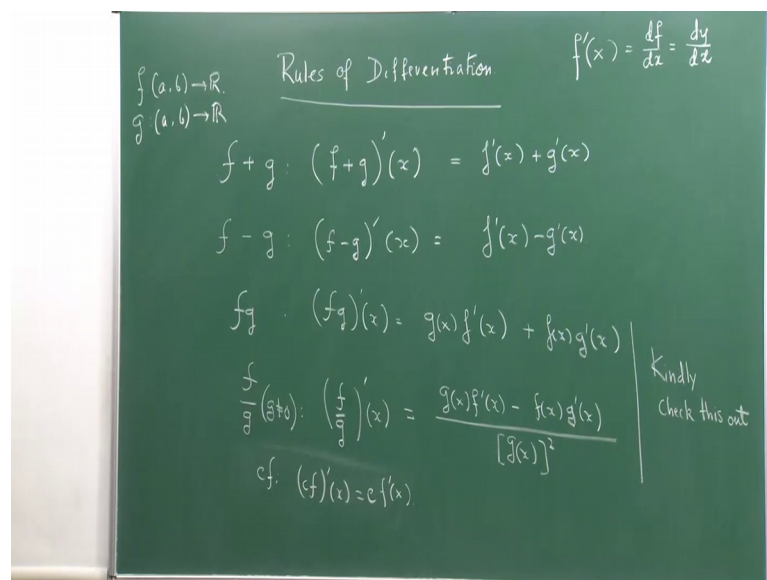 Rules of Differentiation
f'(x) = df/dx = dy/dx
f (a,b) → R.
g : (a,b) → R
f + g : (f+g)'(x) = f'(x) + g'(x)
f - g : (f-g)'(x) = f'(x) - g'(x)
fg . (fg)'(x) = g(x) f'(x) + f(x) g'(x)
f/g (g≠0) : (f/g)'(x) = g(x)f'(x) - f(x) g'(x) / [g(x)]²
cf. (cf)'(x) = c f'(x)
Kindly
check this out